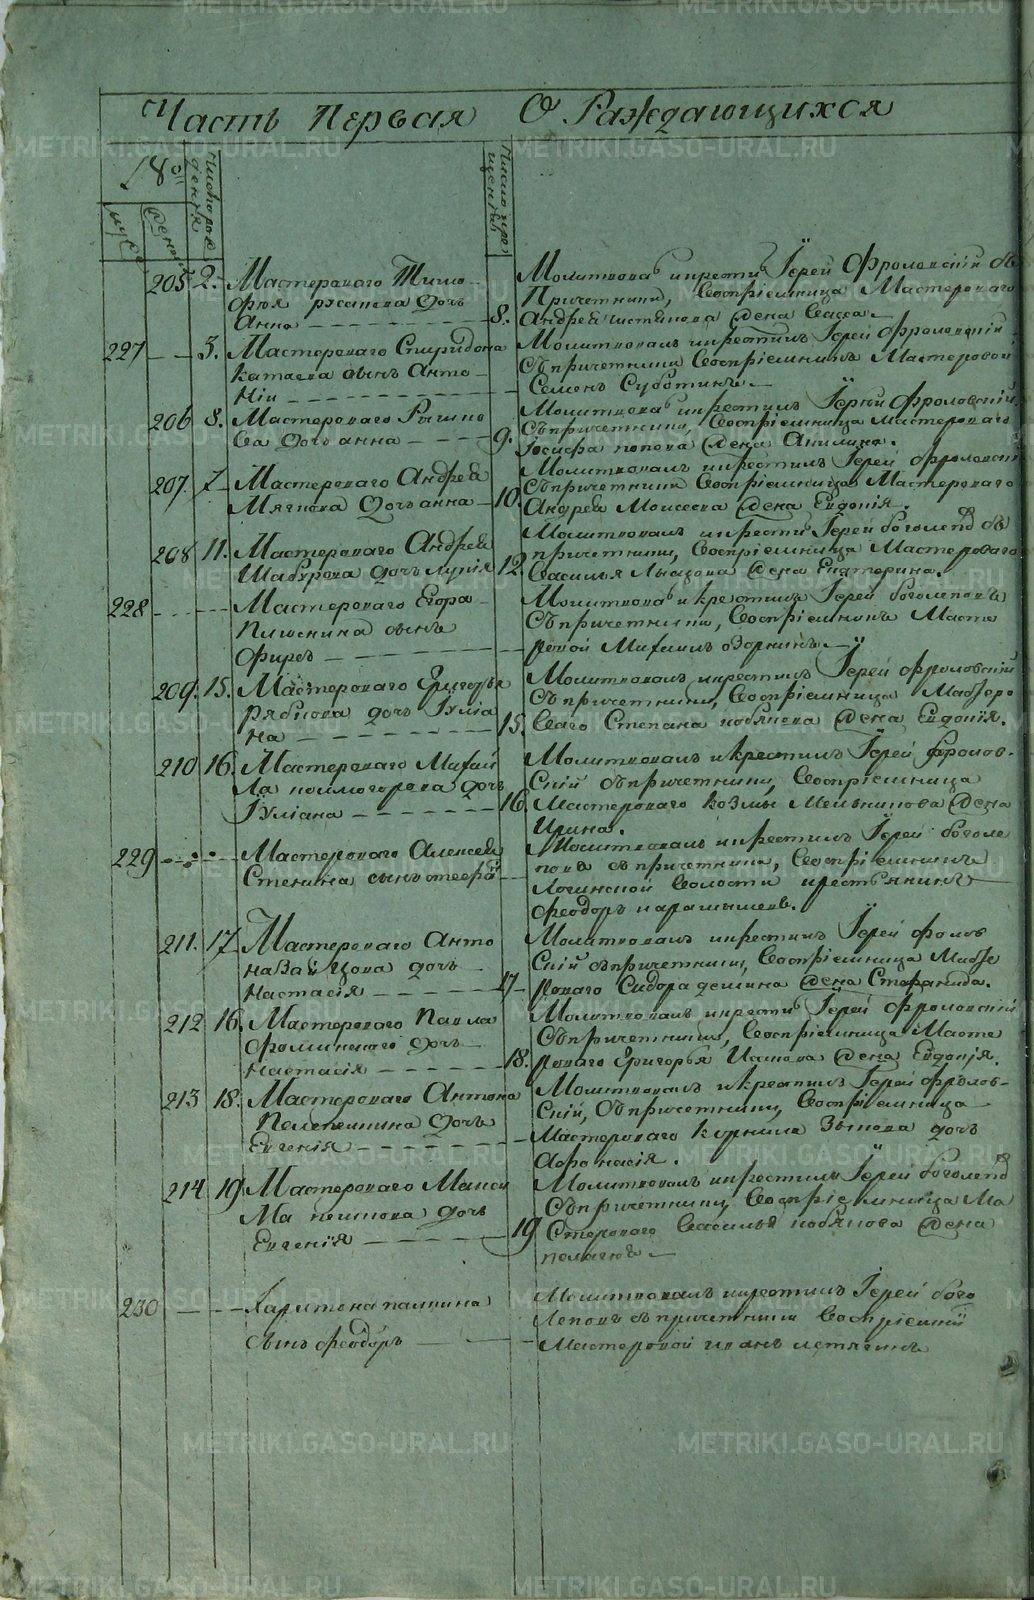 Часть Первая О Раждающихся
18
муж
женс
число рож
дения
число кре
щения
205 2. Мастероваго Тимо
фея дочь
Анна 8.
Молитвова и крести Їерей Фроловскїй съ
Причетники, Воспрїемница Мастероваго
Андрея жена Васса.
227 3. Мастероваго Спиридона
Катаева сынъ Анто
нїи
Молитвовалъ и крестилъ Їерей Фроловскїй
Съ причетники Воспрїемникъ Мастеровой
Семенъ Суботинъ.
206 8. Мастероваго
ва дочь анна 9.
Молитвова и крестилъ Їерей Фроловскїй
Съ причетники, Воспрїемница Мастероваго
Їосифа попова жена Акилина.
207. 7 Мастероваго Андрея
Мягкова дочь анна 10.
Молитвовалъ и крестилъ Їерей Фроловскїй
Съ причетники Воспрїемница Мастероваго
Андрея Моисеева жена Евдокїя.
208 11. Мастероваго Андрея
Шабурова дочь лукїя 12
Молитвовалъ и крести Їерей боголепов съ
причетники, Воспрїемница Мастероваго
Василья жена Екатерина.
228 Мастероваго Егора
сынъ
Фирсъ
Молитвова и крестилъ Їерей боголеповъ
Съ причетники, Воспрїемникъ Масте
ровой Михаилъ
209. 15. Мастероваго Григорья
Рябкова дочь Їулїа
на 15.
Молитвовалъ и крестилъ Їерей Фроловскїй
Съ причетники, Воспрїемница Мастеро
ваго Степана кобякова жена Евдокїя.
210 16. Мастероваго Михай
ла колмогорова дочь
Їулїана 16
Молитвовалъ и крестилъ Їерей Фролов
скїй съ причетники, Воспрїемница
Мастероваго козмы Мельникова жена
Ирина.
229 Мастероваго Алексея
Стенина сынъ
Молитвовалъ и крестилъ Їерей боголе
повъ съ причетники, Воспрїемникъ
волости крестьянинъ
Феодоръ карамышевъ.
211. 17 Мастероваго Анто
на Зайцова дочь
Настасїя 17
Молитвовалъ и крестилъ Їерей фролов
скїй съ причетники, Воспрїемница Масте
роваго Сидора демина жена Стефанида.
212 16. Мастероваго Павла
дочь
Настасїя 18.
Молитвовалъ и крести Їерей Фроловскїй
Съ причетники, Воспрїемница Масте
роваго Григорья жена Евдокїя.
213 18. Мастероваго Антона
дочь
Евгенїя
Молитвовалъ и крестилъ Їерей фролов
скїй, Съ причетники, Воспрїемница
Мастероваго Корнила Зыкова дочь
Афонасїя.
214 19. Мастероваго Макси
ма дочь
Евгенїя 19
Молитвовалъ и крестилъ Їерей боголепов
Съ причетники, Воспрїемница Ма
стероваго Василья кобякова жена
пелагея
230 Харитона палкина
сынъ феодоръ
Молитвовалъ и крестилъ Їерей бого
леповъ съ причетники Воспрїемни
Мастеровой иванъ